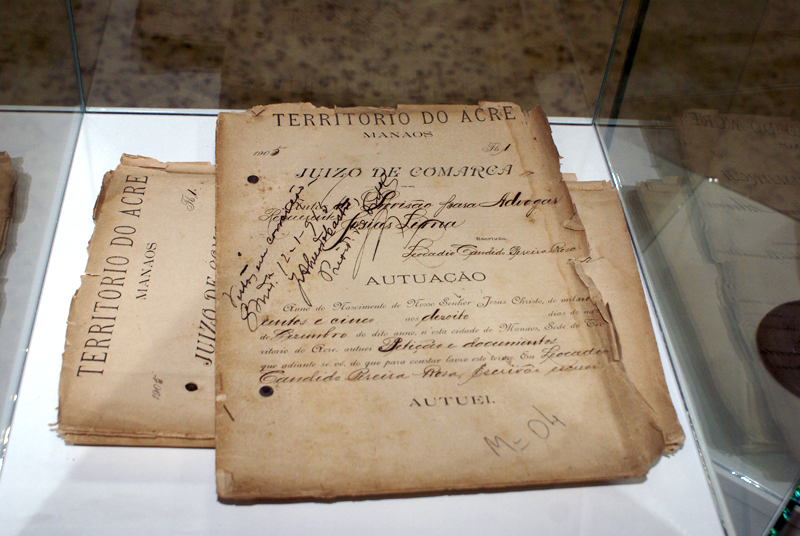 TERRITORIO DO ACRE
MANAOS
1905
Fl. 1
JUIZO DE COMARCA
Provisão para Advogar
Requerente
Josias Lema
Escrivão,
Leocadio Candido Pereira Rosa
AUTUAÇÃO
Anno do Nascimento de Nosso Senhor Jesus Christo, de mil nove
centos e cinco aos dezoito dias do
de Dezembro do dito anno, n'esta cidade de Manáos, Séde do Ter
ritorio do Acre, autuei Petição e documentos
que adiante se vê, do que para constar lavro este termo. Eu Leocadio
Candido Pereira Rosa, Escrivão
AUTUEI.
M-04
Visto em correição
12-1-9
TERRITORIO DO ACRE
MANAOS
1905
Fl. 1
JUIZO DE COM